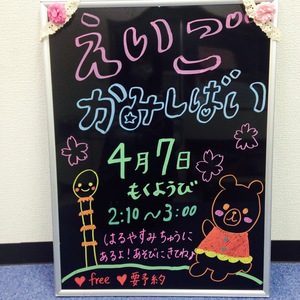 えいご
かみしばい
4月7日
もくようび
2:10～3:00
はるやすみちゅうに
あるよ！あそびにきてね♪
♥free ♥要予約